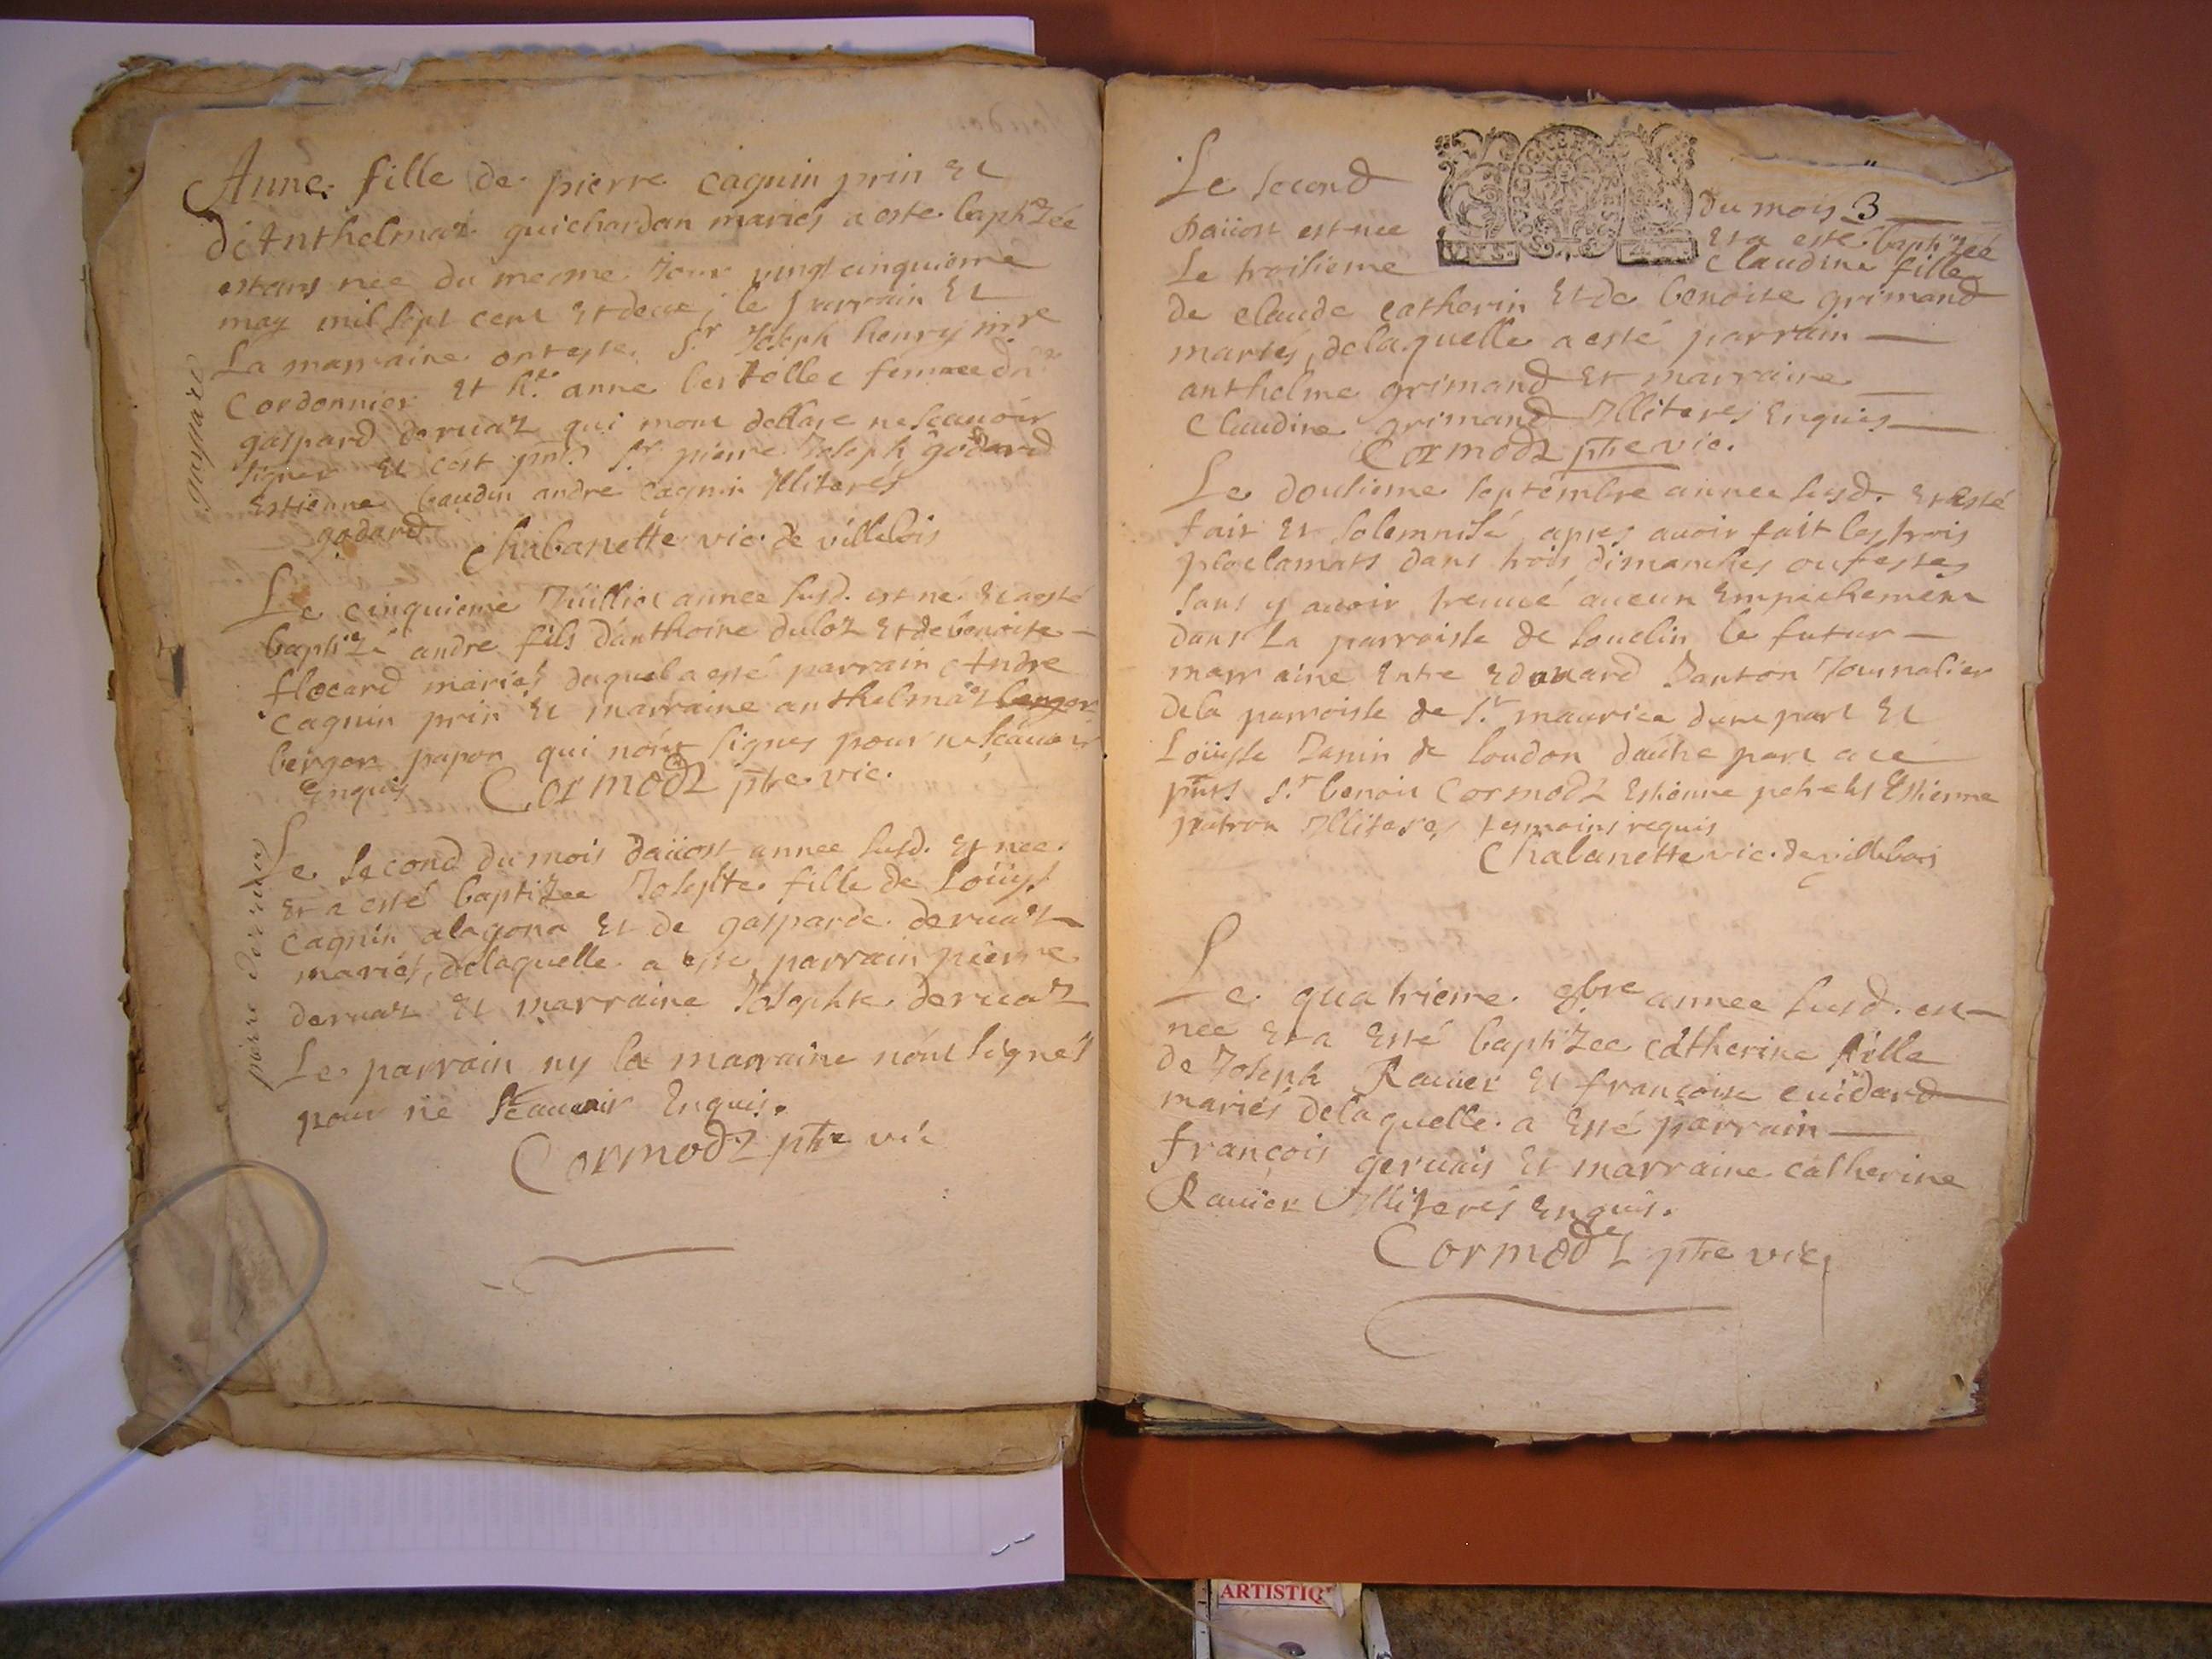 Anne fille de pierre caguin prin et
d'Anthelmaz guichardan mariés a esté baptizée
estans née du mesme Jour vingt cinquieme
may mil sept cent et deux; le parrain et
La marraine ont esté Sr. Joseph henry mre
Cordonnier et hte. anne bertollet femme du
gaspard deruaz qui mont dellare ne scauoir
signer et cest pnt. Sr. pierre Joseph godard
Estienne baudin andre Caguin Illiterés
godard Chabanette vic. de villebois
Le cinquieme Juillict annee susd. est né et a esté
baptizé andre fils d'anthoine duloz et de benoite
flocard mariés duquel a esté parrain Andre
Caguin prin et marraine anthelmaz berger
berger papon qui n'ont signes pour ne scauoir
Enquis Cormodz ptre vic.
Le second du mois daiiost annee susd. est nee
et a esté baptizee Josephte fille de Loüys
Caguin alagona et de gasparde deruaz
mariés, delaquelle a esté parrain pierre
deruaz et marraine Josephte deruaz
Le parrain ny la marraine n'ont signés
pour ne scauoir Enquis.
Cormodz ptre vic
pierre deruaz
Le second du mois 3
daiiost est nee et a esté baptizée
Le troisieme claudine fille
de claude catherin et de benoite grimand
mariés, delaquelle a esté parrain
anthelme grimand et marraine
Claudine grimand Illiteres Enquis
Cormodz ptre vic.
Le dousieme septembre annee susd. et esté
fait et solemnisé apres auoir fait les trois
ploclamats dans trois dimanches ou festes
sans y auoir treuué aucun Empeschement
dans La parroisse de souclin le futur
marr aine Entre Edouard Janton Journalier
dela parroisse de St. maurice dune part et
Loüyse Janin de soudon dautre part a ce
pnts Sr. benoit Cormodz Estienne petretes Estienne
patron Illiteres tesmoins requis
Chabanette vic. de villebois
Le quatrieme 9bre annee susd. est
nee et a esté baptizee catherine fille
de Joseph Rauier et françoise cuidard
mariés delaquelle a esté parrain
françois geruais et marraine catherine
Rauier Illiterés Enquis.
Cormodz ptre vic
ARTISTIQ